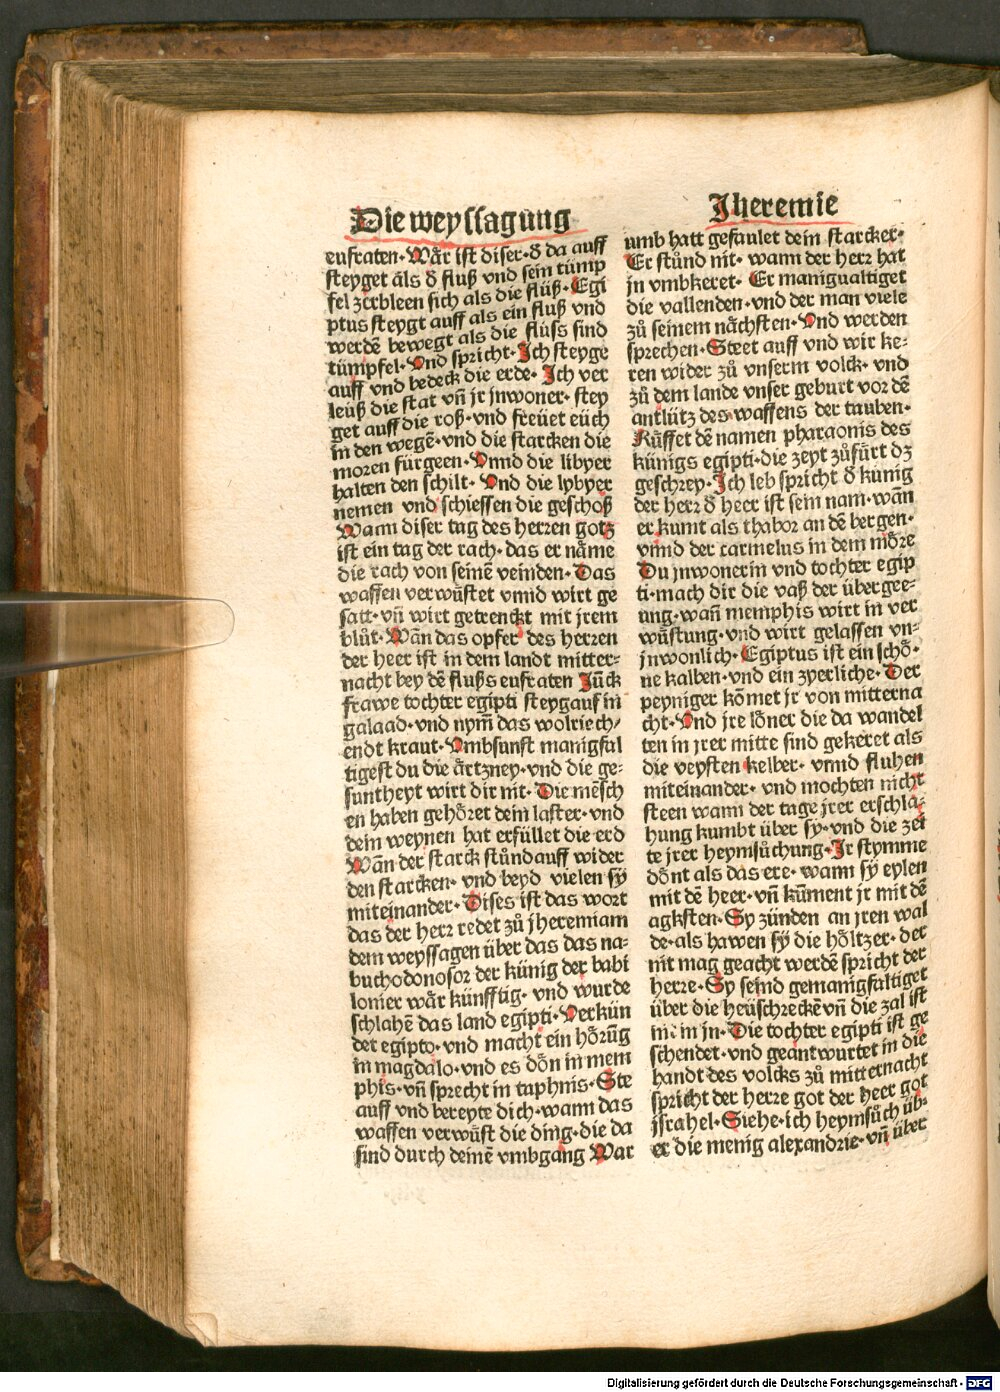 Die weyssagung
eufraten·Wãr ist diser·d̕ da auff
steyget āls d̕ fluß vnd sein tůmp
fel zerbleen sich als die flüß·Egi
ptus steygt auff als ein fluß vnd
werdē bewegt als die flüss sind
tümpfel·Vnd spricht·Ich steyge
auff vnd bedeck die erde·Ich ver
leüß die stat vñ jr jnwoner·stey
get auff die roß·vnd freüet eüch
in den wegē·vnd die starcken die
moren für geen·Vnnd die libyer
halten den schilt·Vnd die lybyer
nemen vnd schiessen die geschoß
Wann diser tag des herren gotz
ist ein tag der rach·das er näme
die rach von seinē veinden·Das
waffen verwüstet vnnd wirt ge
satt·vñ wirt getrenckt mit jrem
blůt·Wān das opfer des herzen
der heer ist in dem landt mitter⸗
nacht bey dē flußs eufraten Jūck
frawe tochter egipti steyg auf in
galaad·vnd nym̄ das wolriech/
endt kraut·Vmbsunst manigfal
tigest du die ärtzney·vnd die ge⸗
suntheyt wirt dir nit·Die mēsch
en haben gehöret dein laster·vnd
dein weynen hat erfüllet die erd
Wān der starck stůnd auff wider
den starcken·vnd beyd vielen sy
miteinander·Dises ist das wort
das der herr redet zů jheremiam
dem weyssagen über das das na⸗
buchodonosor der künig der babi
lonier wär künfftig·vnd wurde
schlahē das land egipti·Verkün
det egipto·vnd macht ein hörūg
in magdalo·vnd es dön in mem
phis·vñ sprecht in taphnis·Ste
auff vnd bereyte dich·wann das
waffen verwüst die ding·die da
sind durch deinē vmbgang War
Jheremie
umb hatt gefaulet dein starcker·
Er stůnd nit·wann der herr hat
jn vmbkeret·Er manigualtiget
die vallenden·vnd der man viele
zů seinem nächsten·Vnd werden
sprechen·Steet auff vnd wir ke⸗
ren wider zů vnserm volck·vnd
zů dem lande vnser geburt vor dē
antlütz des waffens der tauben·
Rüffet dē namen pharaonis des
künigs egipti·die zeyt zůfürt dz
geschrey·Ich leb spricht d̕ künig
der herr d̕ heer ist sein nam·wān
er kumt als thabor an dē bergen·
vnnd der carmelus in dem möre
Du jnwonerin vnd tochter egip
ti·mach dir die vaß der übergee⸗
ung·wañ memphis wirt in ver
wüstung·vnd wirt gelassen vn⸗
jnwonlich·Egiptus ist ein schö⸗
ne kalben·vnd ein zyerliche·Der
peyniger kömet jr von mitterna
cht·Vnd jre löner die da wandel
ten in jrer mitte sind gekeret als
die veysten kelber·vnnd fluhen
miteinander·vnd mochten nicht
steen wann der tage jrer erschla⸗
hung kumbt über sy·vnd die zei
te jrer heymsůchung·Ir stymme
dönt als das ere·wann sy eylen
mit dē heer·vñ kūment jr mit dē
agksten·Sy zünden an jren wal
de·als hawen sy die höltzer·der
nit mag geacht werdē spricht der
herre·Sy seind gemanigfaltiget
über die heüschreckē vñ die zal ist
nit in jn·Die tochter egipti ist ge
schendet·vnd geantwurtet in die
handt des volcks zů mitternacht
spricht der herre got der heer got
jsrahel·Siehe·ich heymsůch üb⸗
er die menig alexandrie·vñ über
Digitalisierung gefördert durch die Deutsche Forschungsgemeinschaft - DFG